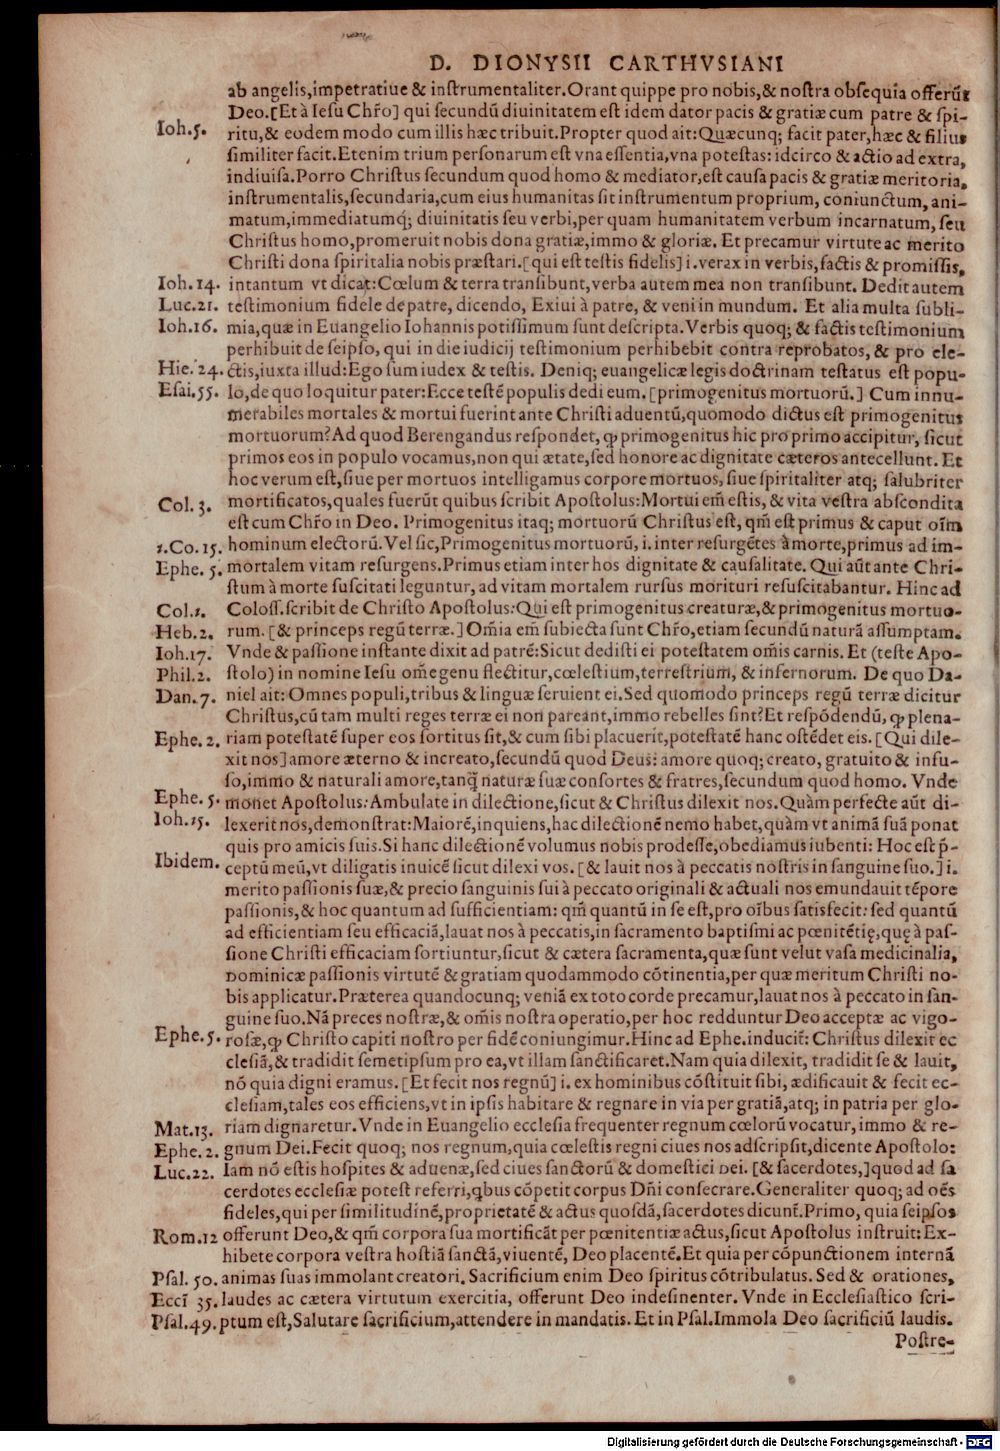 D. DIONYSII CARTHVSIANI
ab angelis,impetratiue & inſtrumentaliter.Orant quippe pro nobis,& noſtra obſequia offerũt
Deo.[Et à Ieſu Chr̃o] qui ſecundũ diuinitatem eſt idem dator pacis & gratiæ cum patre & ſpi-
Ioh.5. ritu,& eodem modo cum illis hæc tribuit.Propter quod ait:Quæcunq; facit pater,hæc & filius
ſimiliter facit.Etenim trium perſonarum eſt vna eſſentia,vna poteſtas: idcirco & actio ad extra,
indiuiſa.Porro Chriſtus ſecundum quod homo & mediator,eſt cauſa pacis & gratiæ meritoria,
inſtrumentalis,ſecundaria,cum eius humanitas ſit inſtrumentum proprium, coniunctum, ani-
matum,immediatumq́; diuinitatis ſeu verbi,per quam humanitatem verbum incarnatum, ſeu
Chriſtus homo,promeruit nobis dona gratiæ,immo & gloriæ. Et precamur virtute ac merito
Chriſti dona ſpiritalia nobis præſtari.[qui eſt teſtis fidelis] i.verax in verbis,factis & promiſſis,
Ioh.14. intantum vt dicat:Cœlum & terra tranſibunt,verba autem mea non tranſibunt. Dedit autem
Luc.21. teſtimonium fidele de patre, dicendo, Exiui à patre, & veni in mundum. Et alia multa ſubli-
Ioh.16. mia,quæ in Euangelio Iohannis potiſſimum ſunt deſcripta.Verbis quoq; & factis teſtimonium
perhibuit de ſeipſo, qui in die iudicij teſtimonium perhibebit contra reprobatos, & pro ele-
Hie.24. ctis,iuxta illud:Ego ſum iudex & teſtis. Deniq; euangelicæ legis doctrinam teſtatus eſt popu-
Eſai.55. lo,de quo loquitur pater:Ecce teſtẽ populis dedi eum.[primogenitus mortuorũ.] Cum innu-
merabiles mortales & mortui fuerint ante Chriſti aduentũ,quomodo dictus eſt primogenitus
mortuorum?Ad quod Berengandus reſpondet, ꝙ primogenitus hic pro primo accipitur, ſicut
primos eos in populo vocamus,non qui ætate,ſed honore ac dignitate cæteros antecellunt. Et
hoc verum eſt,ſiue per mortuos intelligamus corpore mortuos, ſiue ſpiritaliter atq; ſalubriter
Col.3. mortificatos,quales fuerũt quibus ſcribit Apoſtolus:Mortui em̃ eſtis, & vita veſtra abſcondita
eſt cum Chr̃o in Deo. Primogenitus itaq; mortuorũ Chriſtus eſt, qm̃ eſt primus & caput oĩm
1.Co.15. hominum electorũ.Vel ſic,Primogenitus mortuorũ, i. inter reſurgẽtes à morte,primus ad im-
Ephe.5. mortalem vitam reſurgens.Primus etiam inter hos dignitate & cauſalitate. Qui aũt ante Chri-
ſtum à morte ſuſcitati leguntur, ad vitam mortalem rurſus morituri reſuſcitabantur. Hinc ad
Col.1. Coloſſ.ſcribit de Chriſto Apoſtolus:Qui eſt primogenitus creaturæ,& primogenitus mortuo-
Heb.2. rum. [& princeps regũ terræ.] Om̃ia em̃ ſubiecta ſunt Chr̃o,etiam ſecundũ naturã aſſumptam.
Ioh.17. Vnde & paſſione inſtante dixit ad patrẽ:Sicut dediſti ei poteſtatem om̃is carnis. Et (teſte Apo-
Phil.2. ſtolo) in nomine Ieſu om̃e genu flectitur,cœleſtium,terreſtrium, & infernorum. De quo Da-
Dan.7. niel ait: Omnes populi,tribus & linguæ ſeruient ei.Sed quomodo princeps regũ terræ dicitur
Chriſtus,cũ tam multi reges terræ ei non pareant,immo rebelles ſint?Et reſpõdendũ, ꝙ plena-
Ephe.2. riam poteſtatẽ ſuper eos ſortitus ſit,& cum ſibi placuerit,poteſtatẽ hanc oſtẽdet eis.[Qui dile-
xit nos]amore æterno & increato,ſecundũ quod Deus: amore quoq; creato, gratuito & infu-
ſo,immo & naturali amore,tanq̃ naturæ ſuæ conſortes & fratres,ſecundum quod homo. Vnde
Ephe.5. monet Apoſtolus:Ambulate in dilectione,ſicut & Chriſtus dilexit nos.Quàm perfecte aũt di-
Ioh.15. lexerit nos,demonſtrat:Maiorẽ,inquiens,hac dilectionẽ nemo habet,quàm vt animã ſuã ponat
quis pro amicis ſuis.Si hanc dilectionẽ volumus nobis prodeſſe,obediamus iubenti: Hoc eſt p̃-
Ibidem. ceptũ meũ,vt diligatis inuicẽ ſicut dilexi vos. [& lauit nos à peccatis noſtris in ſanguine ſuo.] i.
merito paſſionis ſuæ,& precio ſanguinis ſui à peccato originali & actuali nos emundauit tẽpore
paſſionis,& hoc quantum ad ſufficientiam: qm̃ quantũ in ſe eſt,pro oĩbus ſatisfecit: ſed quantũ
ad efficientiam ſeu efficaciã,lauat nos à peccatis,in ſacramento baptiſmi ac pœnitẽtię,quę à paſ-
ſione Chriſti efficaciam ſortiuntur,ſicut & cætera ſacramenta,quæ ſunt velut vaſa medicinalia,
Dominicæ paſſionis virtutẽ & gratiam quodammodo cõtinentia,per quæ meritum Chriſti no-
bis applicatur.Præterea quandocunq; veniã ex toto corde precamur,lauat nos à peccato in ſan-
guine ſuo.Nã preces noſtræ,& om̃is noſtra operatio,per hoc redduntur Deo acceptæ ac vigo-
Ephe.5. roſæ,ꝙ Chriſto capiti noſtro per fidẽ coniungimur.Hinc ad Ephe.inducit̃: Chriſtus dilexit ec
cleſiã,& tradidit ſemetipſum pro ea,vt illam ſanctificaret.Nam quia dilexit, tradidit ſe & lauit,
nõ quia digni eramus. [Et fecit nos regnũ] i. ex hominibus cõſtituit ſibi, ædificauit & fecit ec-
cleſiam,tales eos efficiens,vt in ipſis habitare & regnare in via per gratiã,atq; in patria per glo-
Mat.13. riam dignaretur.Vnde in Euangelio eccleſia frequenter regnum cœlorũ vocatur, immo & re-
Ephe.2. gnum Dei.Fecit quoq; nos regnum,quia cœleſtis regni ciues nos adſcripſit,dicente Apoſtolo:
Luc.22. Iam nõ eſtis hoſpites & aduenæ,ſed ciues ſanctorũ & domeſtici Dei. [& ſacerdotes,]quod ad ſa
cerdotes eccleſiæ poteſt referri,qbus cõpetit corpus Dñi conſecrare.Generaliter quoq; ad oẽs
fideles,qui per ſimilitudinẽ,proprietatẽ & actus quoſdã,ſacerdotes dicunt̃.Primo, quia ſeipſos
Rom.12 offerunt Deo,& qm̃ corpora ſua mortificãt per pœnitentiæ actus,ſicut Apoſtolus inſtruit:Ex-
hibete corpora veſtra hoſtiã ſanctã,viuentẽ, Deo placentẽ.Et quia per cõpunctionem internã
Pſal.50. animas ſuas immolant creatori. Sacrificium enim Deo ſpiritus cõtribulatus. Sed & orationes,
Eccĩ 35. laudes ac cætera virtutum exercitia, offerunt Deo indeſinenter. Vnde in Eccleſiaſtico ſcri-
Pſal.49. ptum eſt,Salutare ſacrificium,attendere in mandatis. Et in Pſal.Immola Deo ſacrificiũ laudis.
Poſtre-
Digitalisierung gefördert durch die Deutsche Forschungsgemeinschaft - DFG